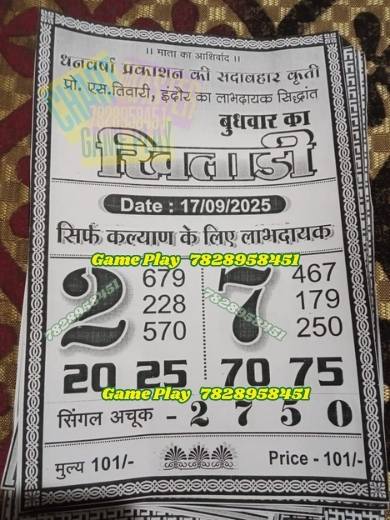 ।। माता का आशिर्वाद ।।
धनवर्षा प्रकाशन की सदाबहार कृती
प्रो. एस.तिवारी, इंदौर का लाभदायक सिद्धांत
7828958451
GAME
बुधवार का
खिलाडी
Date : 17/09/2025
सिर्फ कल्याण के लिए लाभदायक
Game Play 7828958451
2 679 7 467
228 179
570 250
7828958451 7828958451
20 25 70 75
Game Play 7828958451
सिंगल अचूक - 2 7 5 0
मुल्य 101/- Price - 101/-